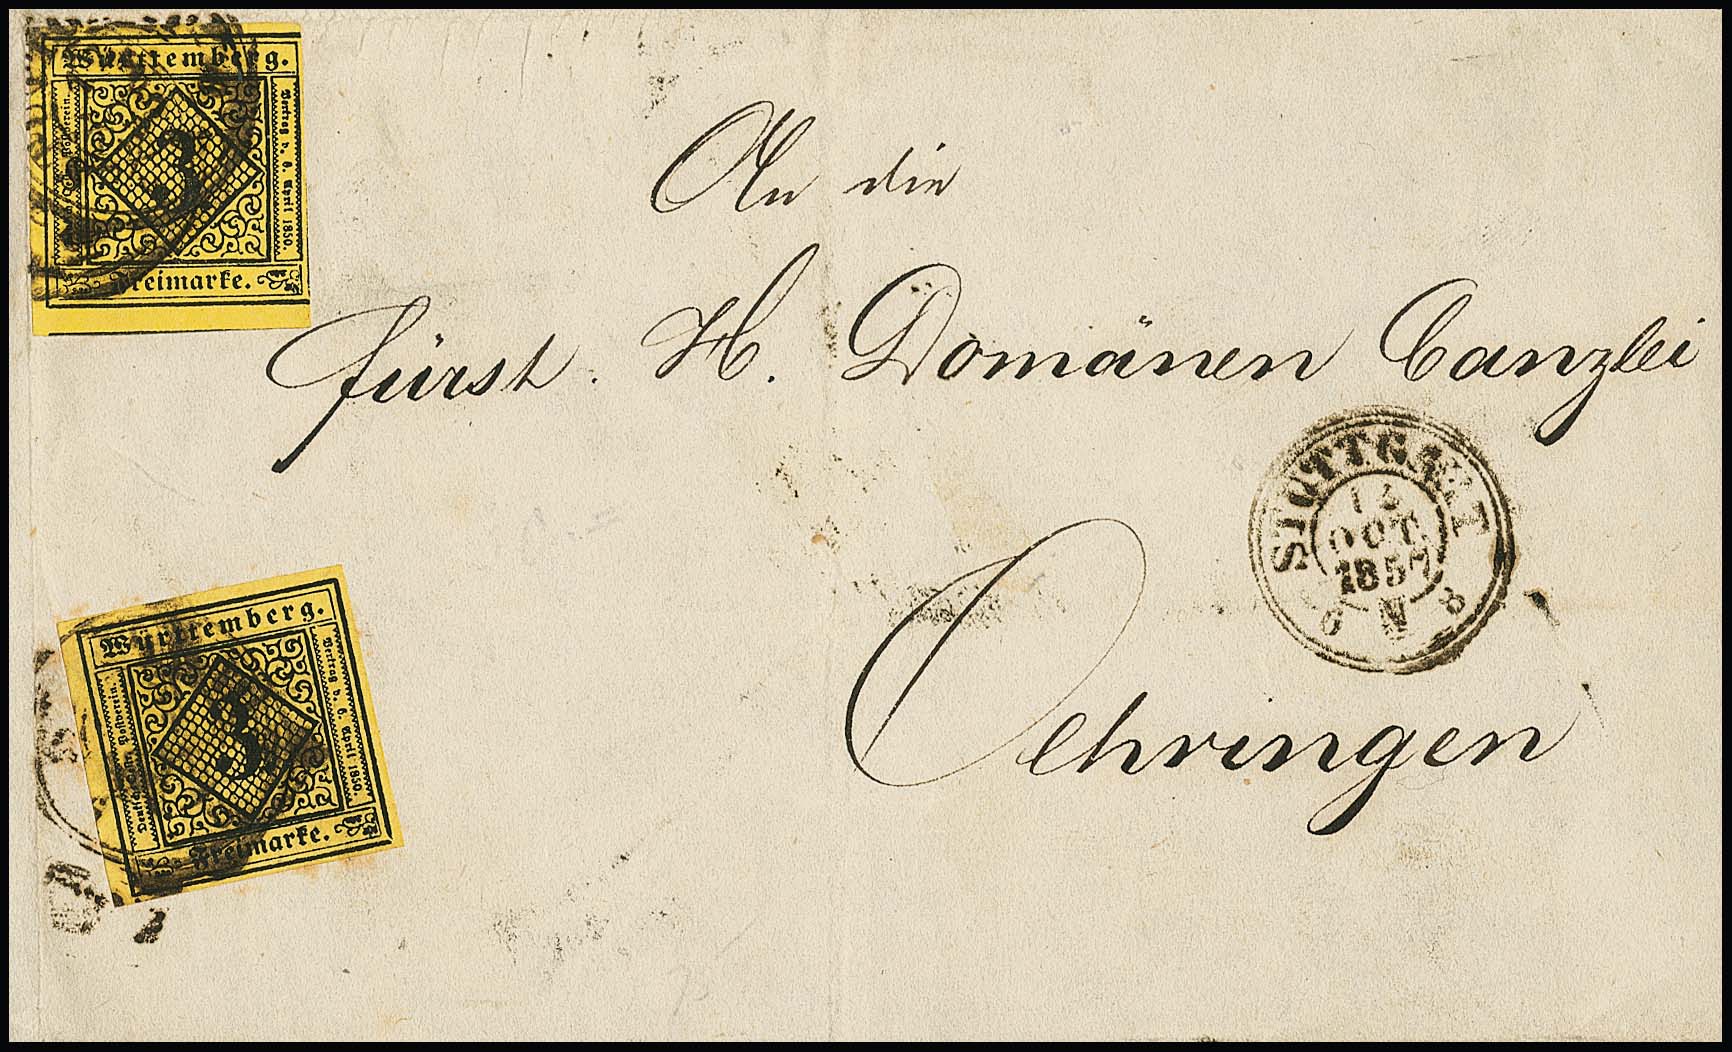 Württemberg.
3
Deutsch-Oestr. Postverein.
Vertrag v. 6. April 1850.
Freimarke.
An die
fürst. H. Domänen Canzlei
STUTTGART
OCT.
1857
6 N 8
Oehringen
Württemberg.
3
Deutsch-Oestr. Postverein.
Vertrag v. 6. April 1850.
Freimarke.